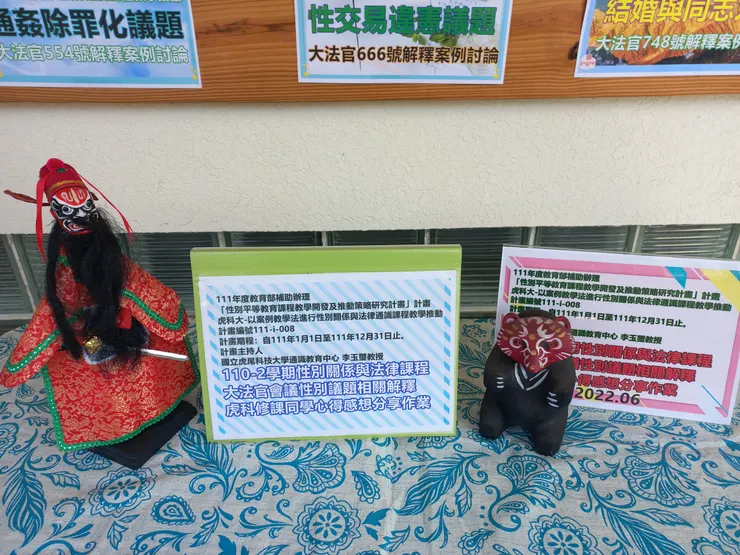 通姦除罪化議題
大法官554號解釋案例討論
性交易違憲議題
大法官666號解釋案例討論
結婚與同志
大法官748號解釋案例
111年度教育部補助辦理
「性別平等教育課程教學開發及推動策略研究計畫」計畫
虎科大-以案例教學法進行性別關係與法律通識課程教學推動
計畫編號111-i-008
計畫期程：自111年1月1日至111年12月31日止。
計畫主持人
國立虎尾科技大學通識教育中心 李玉璽教授
110-2學期性別關係與法律課程
大法官會議性別議題相關解釋
虎科修課同學心得感想分享作業
111年度教育部補助辦理
「性別平等教育課程教學開發及推動策略研究計畫」計畫
虎科大-以案例教學法進行性別關係與法律通識課程教學推動
計畫編號111-i-008
計畫期程：自111年1月1日至111年12月31日止。
通識教育中心 李玉璽教授
性別關係與法律課程
性別議題相關解釋
心得感想分享作業
2022.06